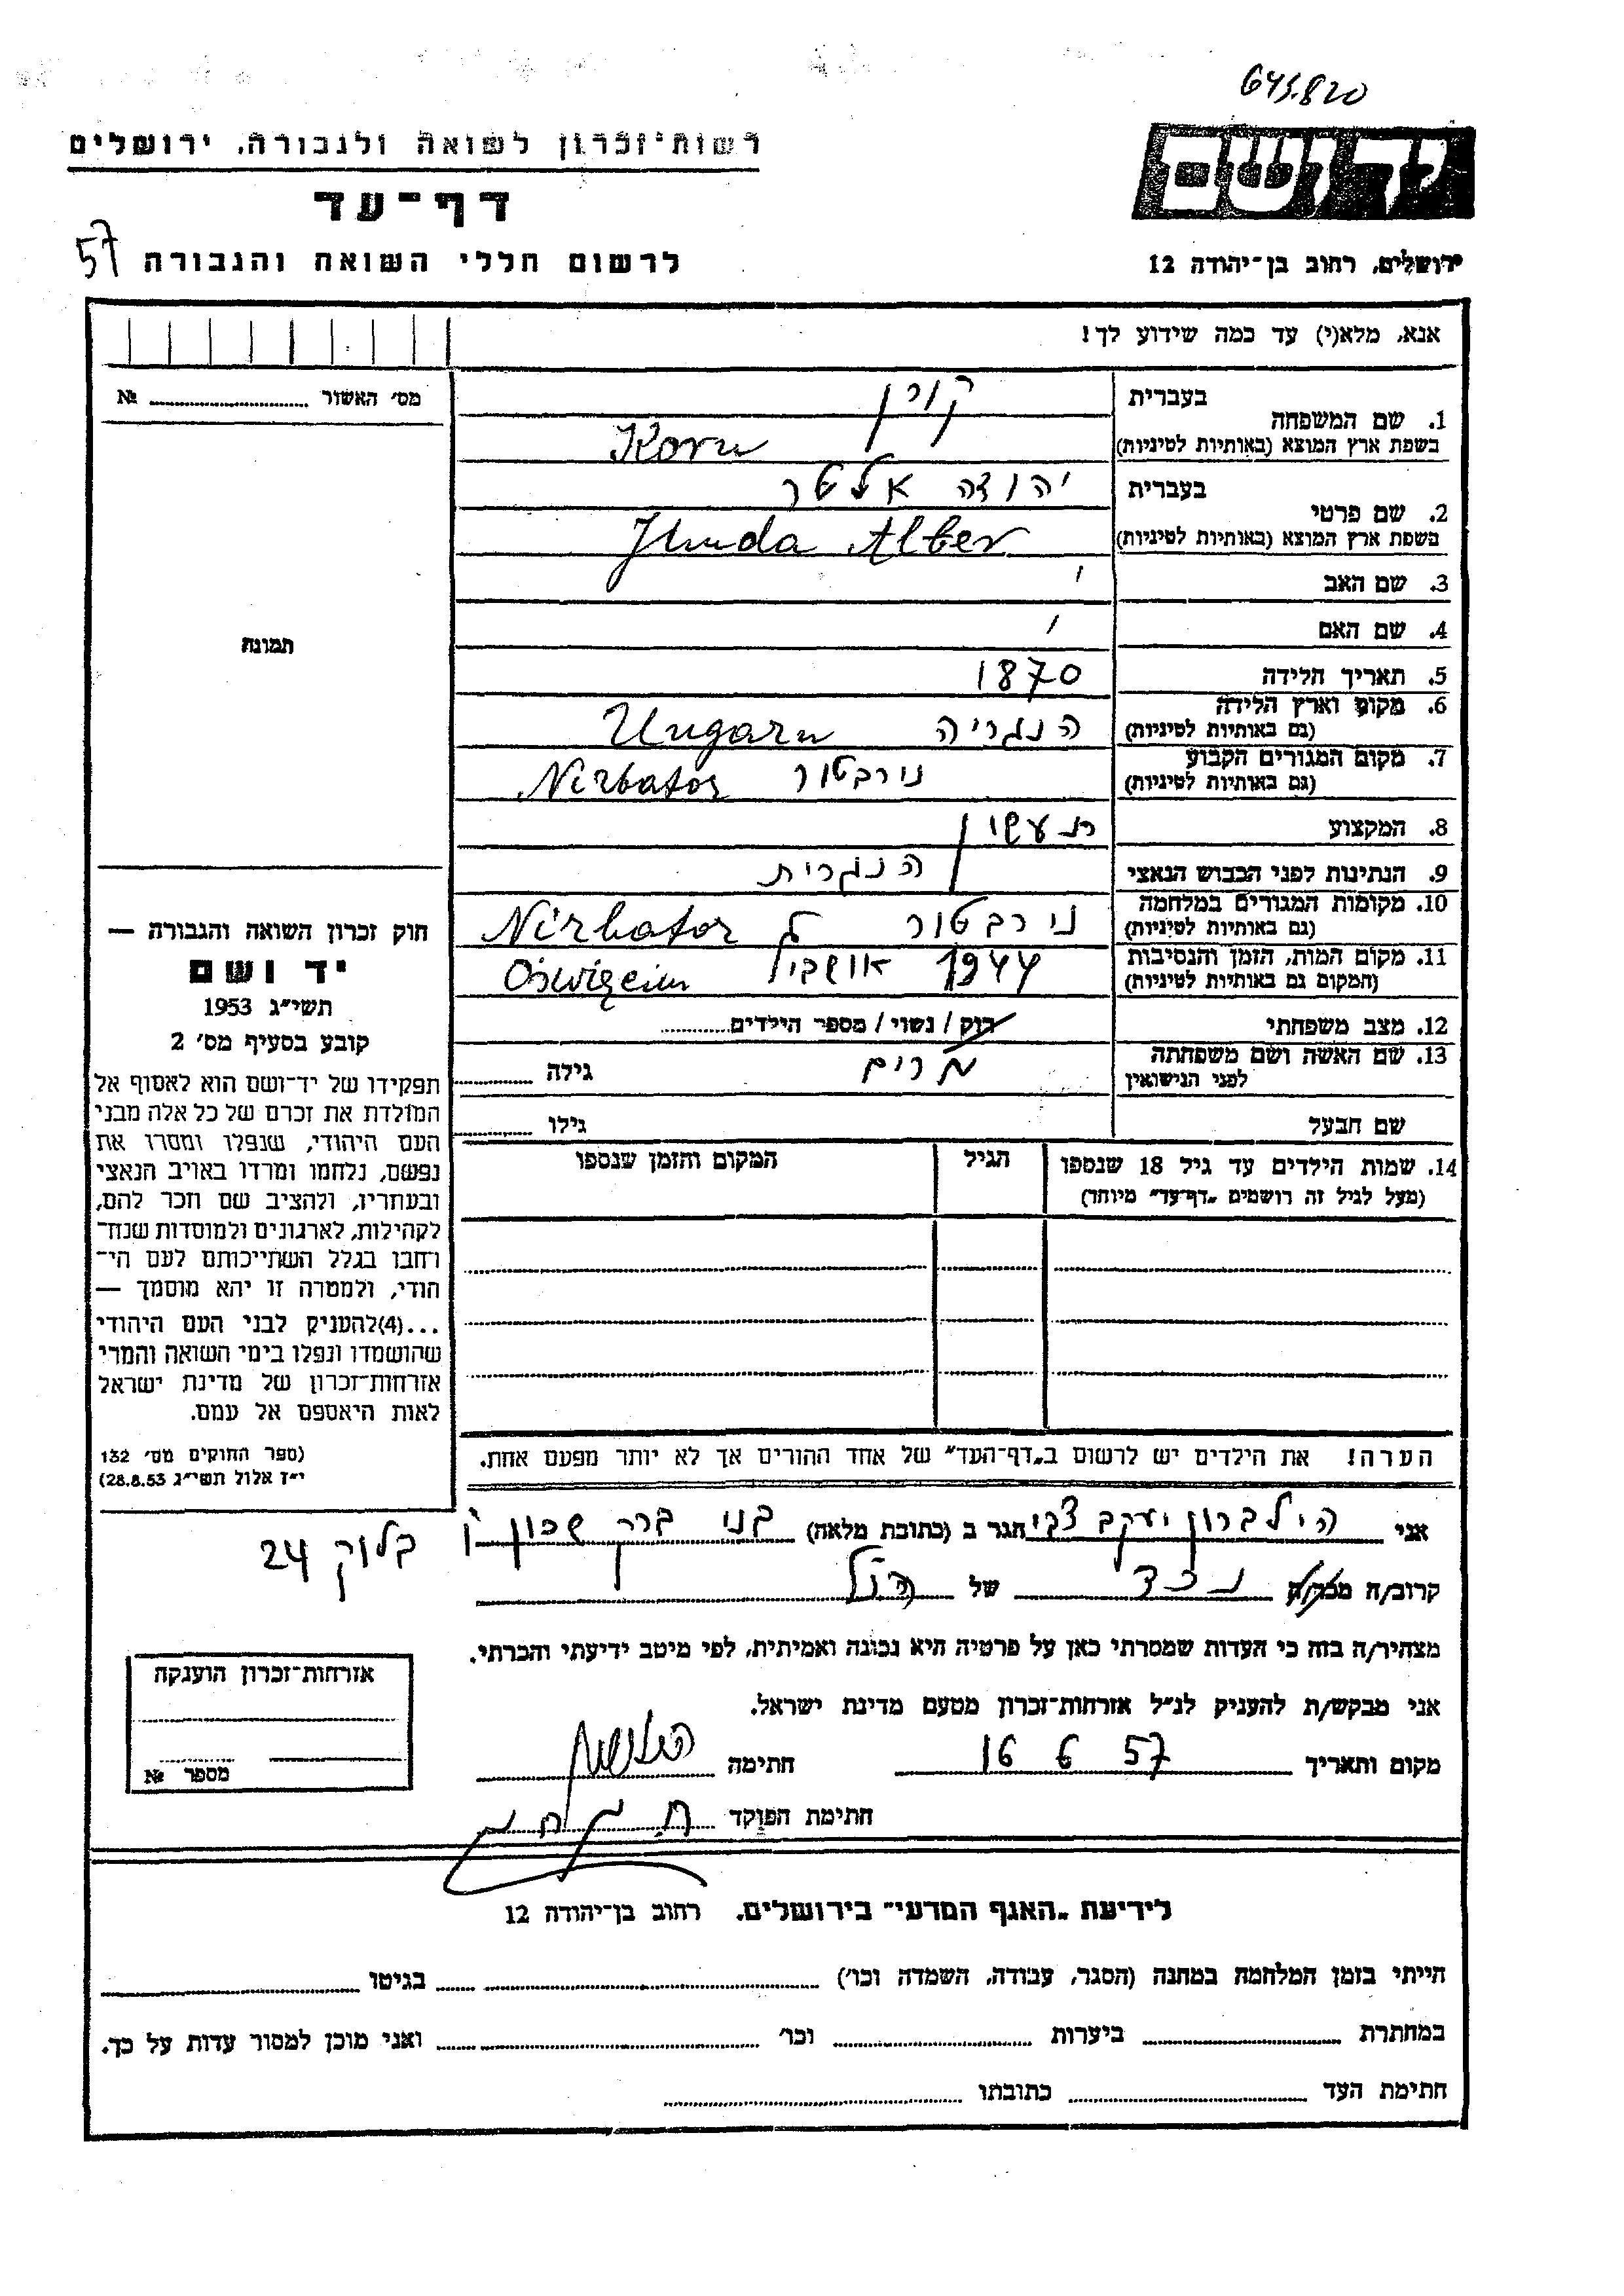 643.820
רשות־זכרון לשואה ולגבורה, ירושלים
דף־עד
57
לרשום חללי השואה והגבורה
יד ושם
ירושלים, רחוב בן־יהודה 12
אנא, מלא(י) עד כמה שידוע לך!
מס׳ האשור № 
1. שם המשפחה
בעברית קורן
בשפת ארץ המוצא (באותיות לטיניות) Korn
2. שם פרטי
בעברית יהודה אלטר
בשפת ארץ המוצא (באותיות לטיניות) Jhuda Alter
3. שם האב
4. שם האם
5. תאריך הלידה 1870
6. מקום וארץ הלידה (גם באותיות לטיניות) הנגריה Ungarn
7. מקום המגורים הקבוע (גם באותיות לטיניות) נירבטור Nirbator
8. המקצוע
9. הנתינות לפני הכבוש הנאצי הנגרית
10. מקומות המגורים במלחמה (גם באותיות לטיניות) נירבטור Nirbator
11. מקום המות, הזמן והנסיבות (המקום גם באותיות לטיניות) 1944
12. מצב משפחתי רוק / נשוי / מספר הילדים
13. שם האשה ושם משפחתה לפני הנישואין מרים גילה
שם הבעל גילו
14. שמות הילדים עד גיל 18 שנספו
(מעל לגיל זה רושמים „דף־עד” מיוחד)
הגיל
המקום והזמן שנספו
הערה! את הילדים יש לרשום ב„דף־העד” של אחד ההורים אך לא יותר מפעם אחת.
תמונה
חוק זכרון השואה והגבורה —
יד ושם
תשי״ג 1953
קובע בסעיף מס׳ 2
תפקידו של יד־ושם הוא לאסוף אל
המולדת את זכרם של כל אלה מבני
העם היהודי, שנפלו ומסרו את
נפשם, נלחמו ומרדו באויב הנאצי
ובעוזריו, ולהציב שם וזכר להם,
לקהילות, לארגונים ולמוסדות שנח־
רחבו בגלל השתייכותם לעם הי־
הודי, ולמטרה זו יהא מוסמך —
...(4)להעניק לבני העם היהודי
שהושמדו ונפלו בימי השואה והמרי
אזרחות־זכרון של מדינת ישראל
לאות היאספם אל עמם.
(ספר החוקים מס׳ 132
י״ז אלול תשי״ג 28.8.53)
אני הילברון יעקב צבי הגר ב (כתובת מלאה) בני ברק שכון
בלוק 24
קרוב/ה נכד של הנ״ל
מצהיר/ה בזה כי העדות שמסרתי כאן על פרטיה היא נכונה ואמיתית, לפי מיטב ידיעתי והכרתי.
אני מבקש/ת להעניק לנ״ל אזרחות־זכרון מטעם מדינת ישראל.
מקום ותאריך 16 6 57 חתימה
חתימת הפוקד
אזרחות־זכרון הוענקה
מספר №
לידיעת „האגף המדעי” בירושלים, רחוב בן־יהודה 12
הייתי בזמן המלחמה במחנה (הסגר, עבודה, השמדה וכו׳) בגיטו
במחתרת ביערות וכו׳ ואני מוכן למסור עדות על כך.
חתימת העד כתובתו